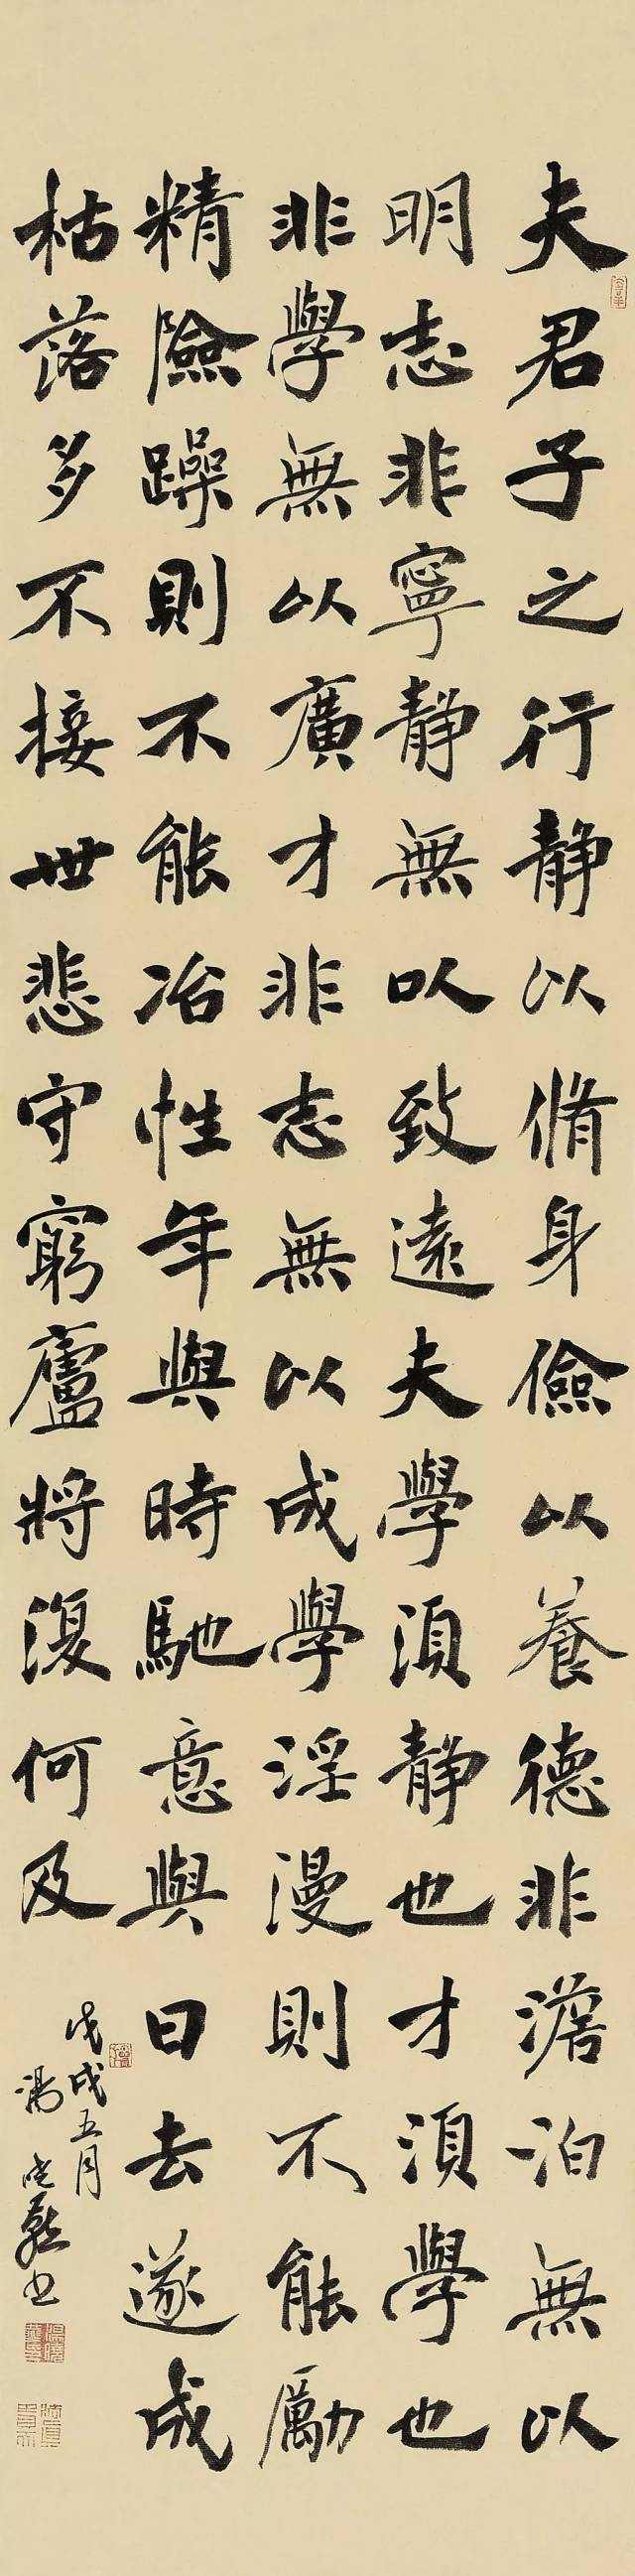 夫君子之行静以脩身儉以養德非澹泊無以
明志非寧静無以致遠夫學須静也才須學也
非學無以廣才非志無以成學淫漫則不能勵
精險躁則不能冶性年與時馳意與日去遂成
枯落多不接世悲守窮廬將復何及
戊戌五月
書